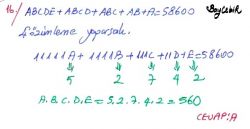 16) ABCDE+ABCD+ABC+AB+A=58600
Çözümleme yaparsak.
11111A + 1111B+111C+11D+E=58600
5 2 7 4 2
A.B.C.D.E = 5.2.7.4.2 = 560
CEVAP:A